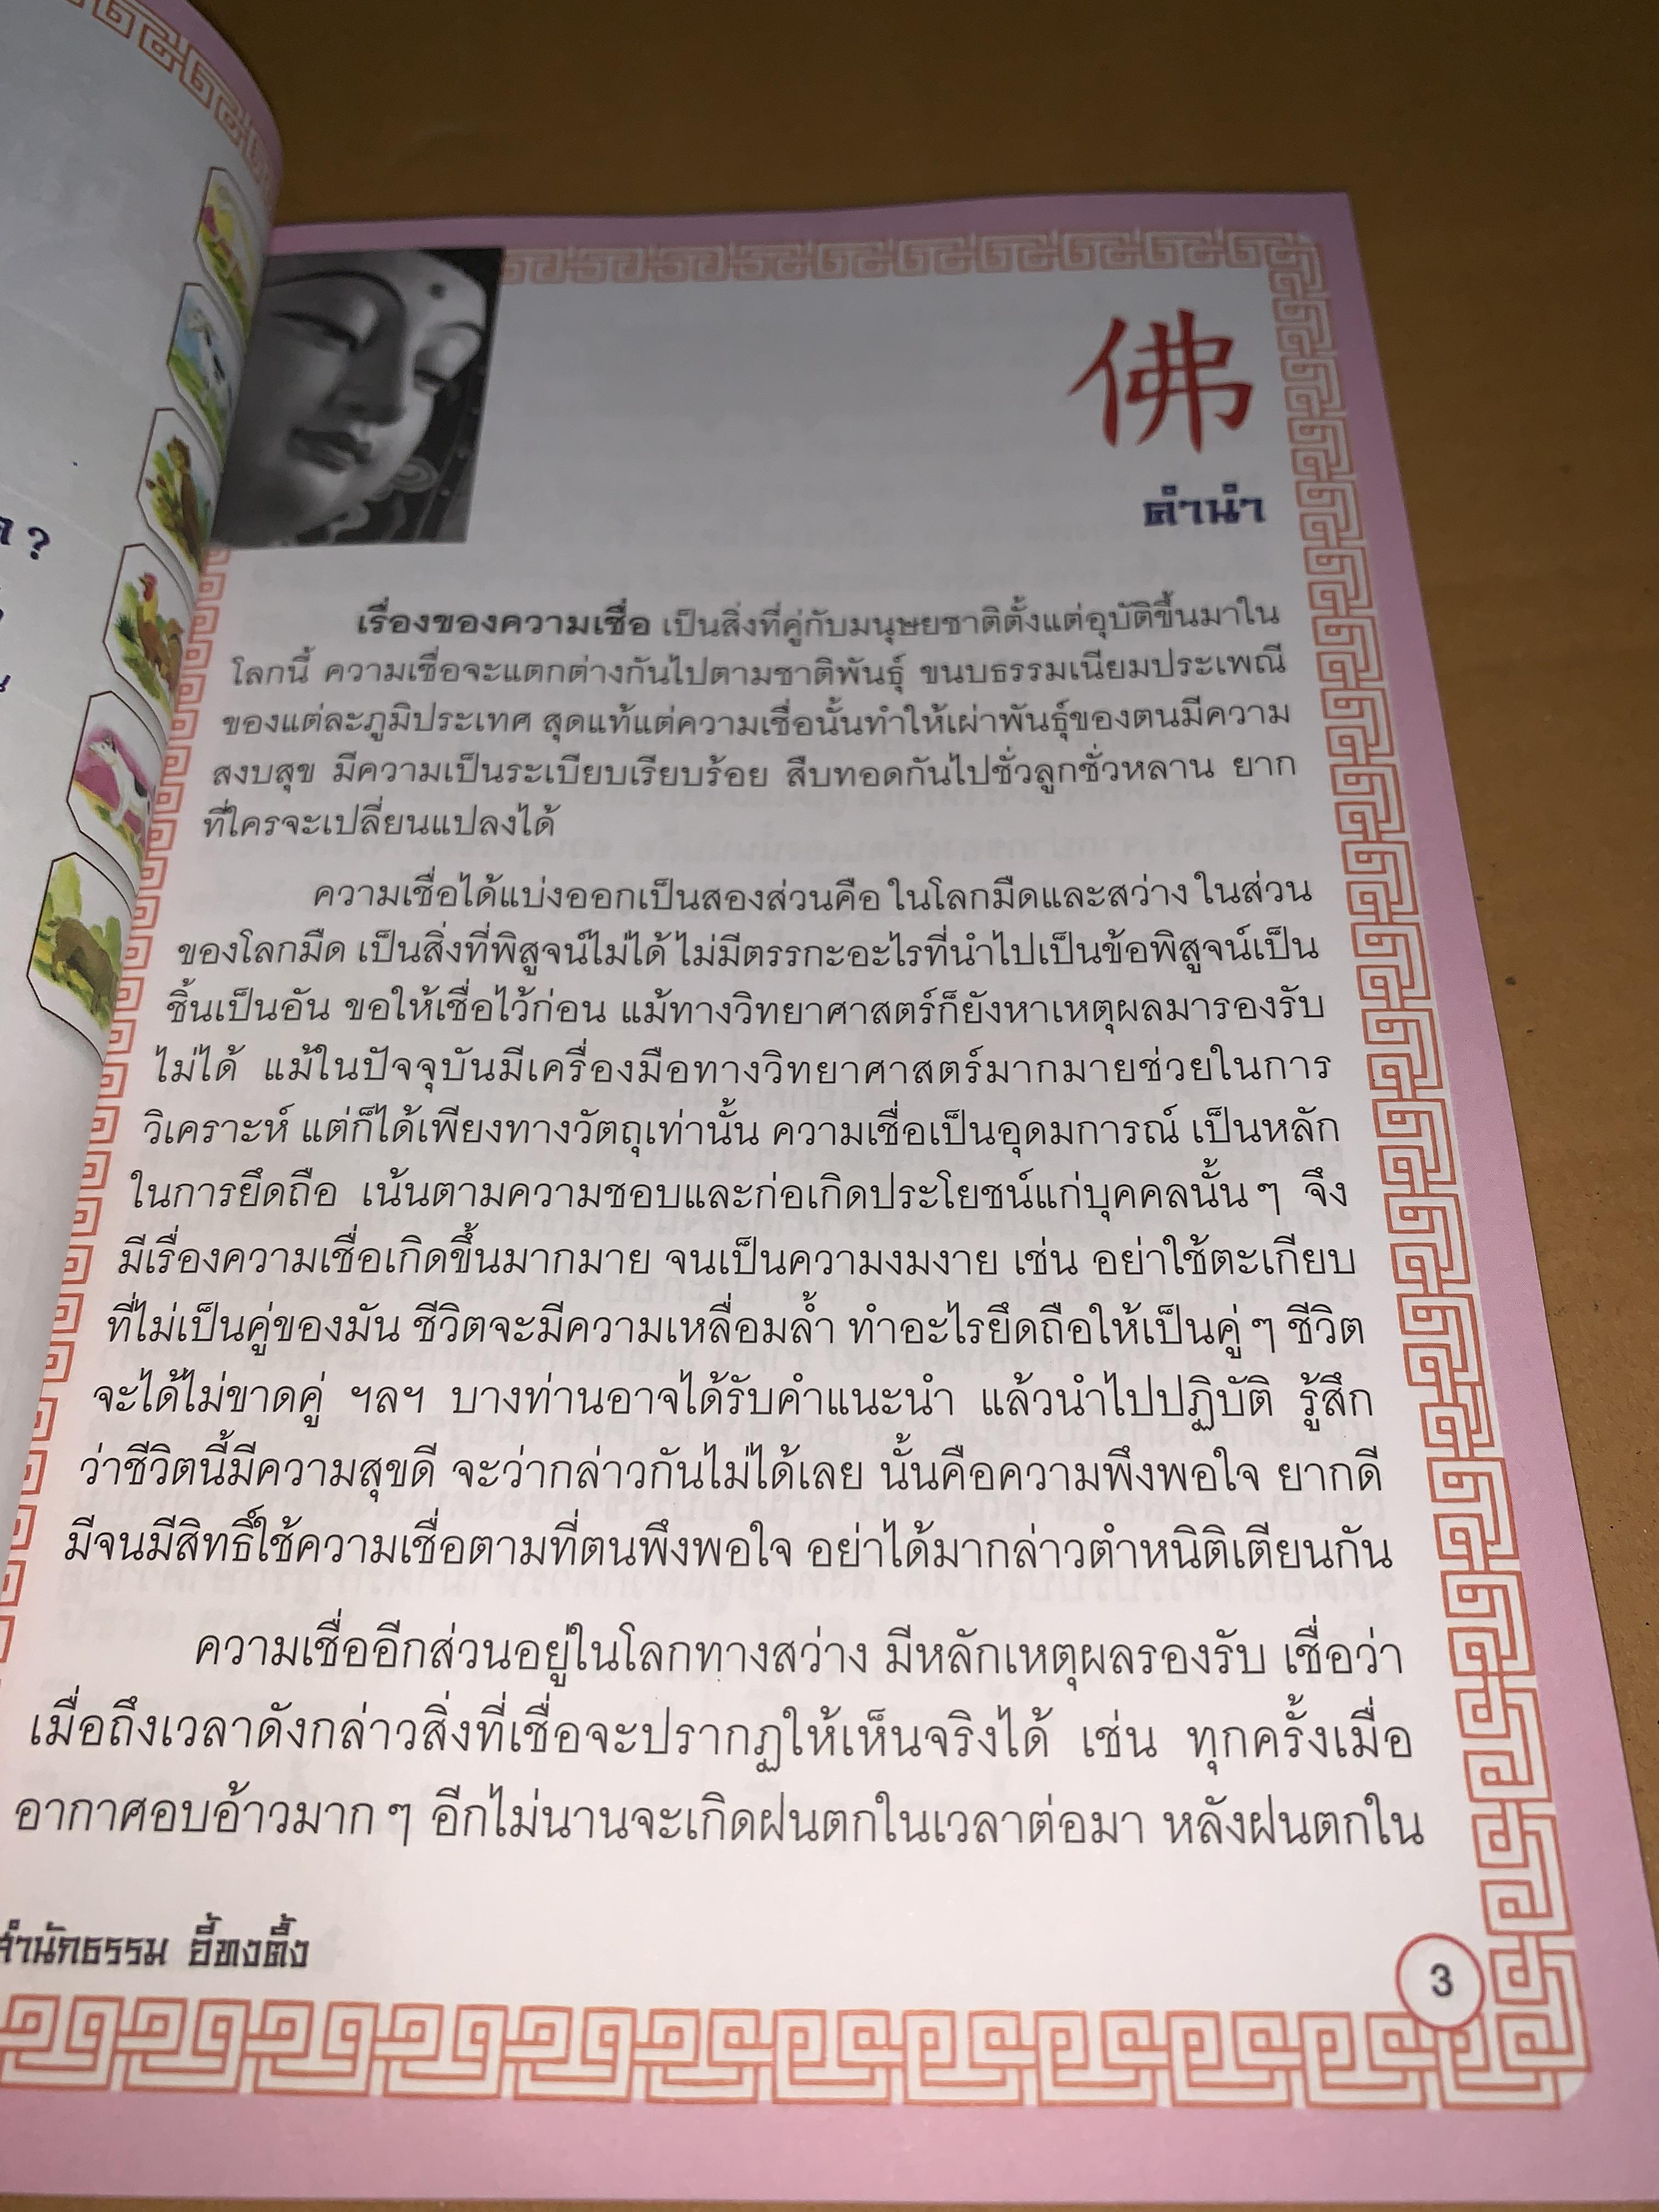 佛
คำนำ
เรื่องของความเชื่อ เป็นสิ่งที่คู่กับมนุษยชาติตั้งแต่อุบัติขึ้นมาใน
โลกนี้ ความเชื่อจะแตกต่างกันไปตามชาติพันธุ์ ขนบธรรมเนียมประเพณี
ของแต่ละภูมิประเทศ สุดแท้แต่ความเชื่อนั้นทำให้เผ่าพันธุ์ของตนมีความ
สงบสุข มีความเป็นระเบียบเรียบร้อย สืบทอดกันไปชั่วลูกชั่วหลาน ยาก
ที่ใครจะเปลี่ยนแปลงได้
ความเชื่อได้แบ่งออกเป็นสองส่วนคือ ในโลกมืดและสว่าง ในส่วน
ของโลกมืด เป็นสิ่งที่พิสูจน์ไม่ได้ ไม่มีตรรกะอะไรที่นำไปเป็นข้อพิสูจน์เป็น
ชิ้นเป็นอัน ขอให้เชื่อไว้ก่อน แม้ทางวิทยาศาสตร์ก็ยังหาเหตุผลมารองรับ
ไม่ได้ แม้ในปัจจุบันมีเครื่องมือทางวิทยาศาสตร์มากมายช่วยในการ
วิเคราะห์ แต่ก็ได้เพียงทางวัตถุเท่านั้น ความเชื่อเป็นอุดมการณ์ เป็นหลัก
ในการยึดถือ เน้นตามความชอบและก่อเกิดประโยชน์แก่บุคคลนั้นๆ จึง
มีเรื่องความเชื่อเกิดขึ้นมากมาย จนเป็นความงมงาย เช่น อย่าใช้ตะเกียบ
ที่ไม่เป็นคู่ของมัน ชีวิตจะมีความเหลื่อมล้ำ ทำอะไรยึดถือให้เป็นคู่ๆ ชีวิต
จะได้ไม่ขาดคู่ ฯลฯ บางท่านอาจได้รับคำแนะนำ แล้วนำไปปฏิบัติ รู้สึก
ว่าชีวิตนี้มีความสุขดี จะว่ากล่าวกันไม่ได้เลย นั้นคือความพึงพอใจ ยากดี
มีจนมีสิทธิ์ใช้ความเชื่อตามที่ตนพึงพอใจ อย่าได้มากล่าวตำหนิติเตียนกัน
ความเชื่ออีกส่วนอยู่ในโลกทางสว่าง มีหลักเหตุผลรองรับ เชื่อว่า
เมื่อถึงเวลาดังกล่าวสิ่งที่เชื่อจะปรากฏให้เห็นจริงได้ เช่น ทุกครั้งเมื่อ
อากาศอบอ้าวมากๆ อีกไม่นานจะเกิดฝนตกในเวลาต่อมา หลังฝนตกใน
สำนักธรรม อี้ทงตึ้ง
3